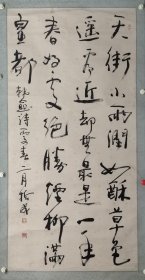 天街小雨潤如酥草色
遥看近却無最是一年
春好處絕勝煙柳滿
皇都
韓愈詩 春二月